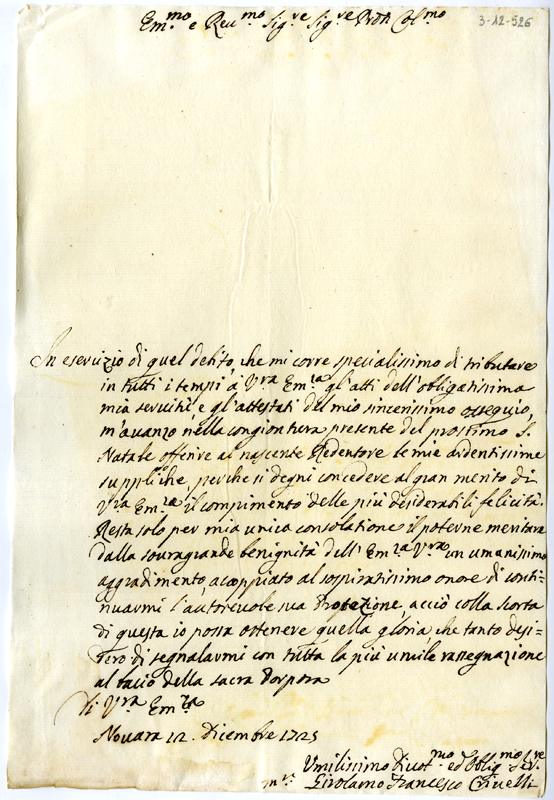 3-12-526
Em.mo e Reu.mo Sig.re Sig.re Pron Col.mo
In eseruizio di quel debito, che mi corre specialissimo di tributare
in tutti i tempi à V.ra Em.za gl'atti dell'obligatissima
mia seruitù, e gl'attestati del mio sincerissimo ossequio,
m'auanzo nella congiontura presente del prossimo S.
Natale offerire al nascente Redentore le mie ardentissime
suppliche, perche si degni concedere al gran merito di
V.ra Em.za il compimento delle più desiderabili felicità.
Resta solo per mia unica consolatione il poterne meritare
dalla souragrande benignità dell'Em.za V.ra un umanissimo
aggradimento, acoppiato al sospiratissimo onore di conti-
nuarmi l'autoreuole sua Protezione, acciò colla scorta
di questa io possa ottenere quella gloria, che tanto desi-
dero di segnalarmi con tutta la più umile rassegnazione
al bacio della sacra Porpora
Di V.ra Em.za
Nouara 12. Dicembre 1725
Umilissimo Diuot.mo ed Oblig.mo Ser.re
Girolamo Francesco Criuelli